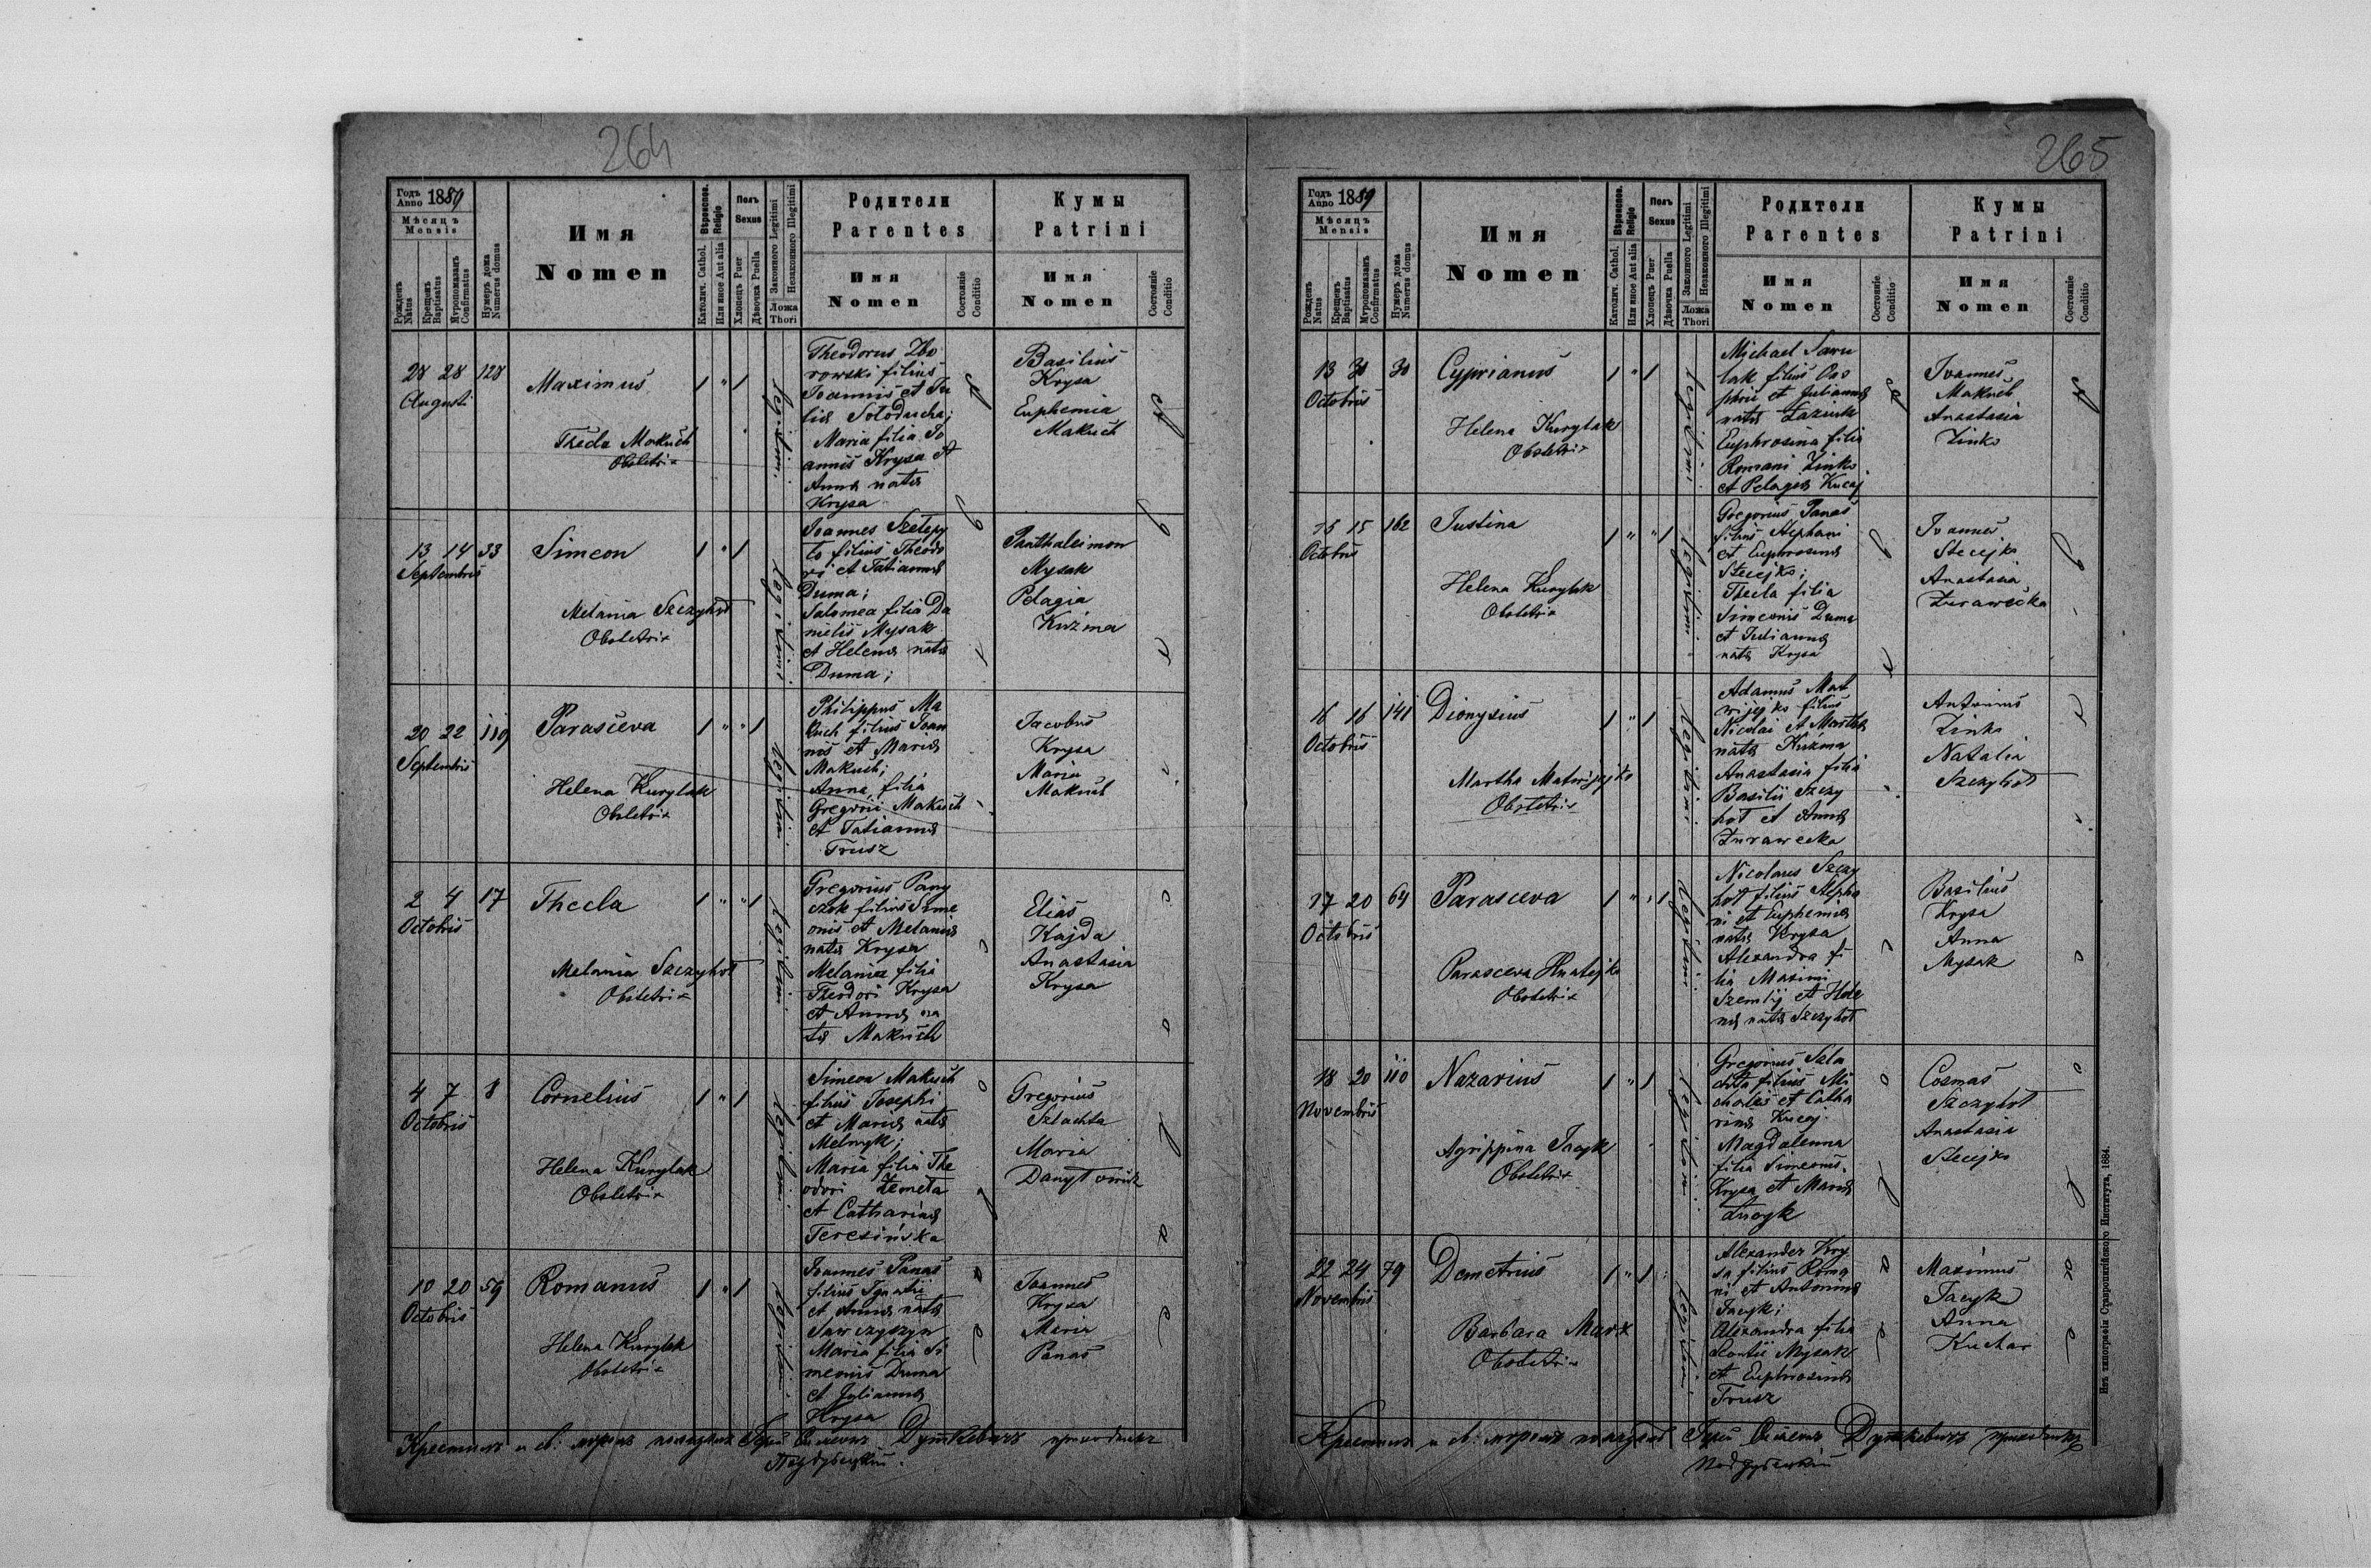 264
Годъ Anno 1889
Мѣсяцъ
Mensis
Рожденъ Natus
Крещенъ Baptisatus
Мѵропомазанъ Confirmatus
Нумеръ дома Numerus domus
Имя
Nomen
Вѣроиспов. Religio
Католич. Cathol.
Или иное Aut alia
Полъ
Sexus
Хлопецъ Puer
Дѣвочка Puella
Законного Legitimi
Незаконного Illegitimi
Ложа
Thori
Родители
Parentes
Имя
Nomen
Состояніе Conditio
Кумы
Patrini
Имя
Nomen
Состояніе Conditio
28 28 128
Augusti
Maximus
1 " 1
Thecla Makuch
Obstetrix
Legitimi
Theodorus Zbo
rowski filius
Joannis et Ju
liæ Sołoducha;
Maria filia Jo
annis Krysa et
Annæ natæ
Krysa
Basilius
Krysa
Euphemia
Makuch
13 14 33
Septembris
Simeon
1 " 1
Melania Szczyhot
Obstetrix
Legitimi
Joannes Szelepy
to filius Theodo
ri et Tatiannæ
Duma;
Salomea filia Da
nielis Mysak
et Helenæ natæ
Duma;
Panthaleimon
Mysak
Pelagia
Kuźma
20 22 119
Septembris
Parasceva
1 " " 1
Helena Kurylak
Obstetrix
Legitimi
Philippus Ma
kuch filius Joan
nis et Mariæ
Makuch;
Anna filia
Gregorii Makuch
et Tatiannæ
Trusz
Jacobus
Krysa
Maria
Makuch
2 4 17
Octobris
Thecla
1 " " 1
Melania Szczyhot
Obstetrix
Legitimi
Gregorius Pany
czok filius Sime
onis et Melaniæ
natæ Krysa
Melania filia
Theodori Krysa
et Annæ na
tæ Makuch
Elias
Kajda
Anastasia
Krysa
4 7 8
Octobris
Cornelius
1 " 1
Helena Kurylak
Obstetrix
Legitimi
Simeon Makuch
filius Josephi
et Mariæ natæ
Melnyk;
Maria filia The
odori Żemeła
et Catharinæ
Teresińska
Gregorius
Szlachta
Maria
10 20 59
Octobris
Romanus
1 " 1
Helena Kurylak
Obstetrix
Legitimi
Joannes Panas
filius Ignatii
et Annæ natæ
Sawczyszyn
Maria filia Si
meonis Duma
et Juliannæ
Krysa
Joannes
Krysa
Maria
Panas
Крестилъ и св: мѵромъ помазалъ Іерей Симеонъ Дуткевичъ приходникъ
265
Годъ Anno 1889
Мѣсяцъ
Mensis
Рожденъ Natus
Крещенъ Baptisatus
Мѵропомазанъ Confirmatus
Нумеръ дома Numerus domus
Имя
Nomen
Вѣроиспов. Religio
Католич. Cathol.
Или иное Aut alia
Полъ
Sexus
Хлопецъ Puer
Дѣвочка Puella
Законного Legitimi
Незаконного Illegitimi
Ложа
Thori
Родители
Parentes
Имя
Nomen
Состояніе Conditio
Кумы
Patrini
Имя
Nomen
Состояніе Conditio
13 30 30
Octobris
Cyprianus
1 " 1
Helena Kurylak
Obstetrix
Legitimi
Michael Saru
lak filius Ono
phrii et Juliannæ
natæ Łazurk
Euphrosina filia
Romani Zinko
et Pelagiæ Kucaj
Joannes
Makuch
Anastasia
Zinko
15 15 162
Octobris
Justina
1 " " 1
Helena Kurylak
Obstetrix
Legitimi
Gregorius Panas
filius Stephani
et Euphrosinæ
Stecejko;
Thecla filia
Simeonis Duma
et Juliannæ
natæ Krysa
Joannes
Stecejko
Anastasia
Żurawecka
16 16 141
Octobris
Dionysius
1 " 1
Martha Matwijejko
Obstetrix
Legitimi
Adamus Mat
wijejko filius
Nicolai et Marthæ
natæ Kuźma
Anastasia filia
Basilii Szczy
hot et Annæ
Żurawecka
Antonius
Zinko
Natalia
Szczyhot
17 20 64
Octobris
Parasceva
1 " " 1
Parasceva Hnatejko
Obstetrix
Legitimi
Nicolaus Szczy
hot filius Stepha
ni et Euphemiæ
natæ Krysa
Alexandra fi
lia Maximi
Szemlij et Hele
næ natæ Szczyhot
Basilius
Krysa
Anna
Mysak
18 20 110
Novembris
Nazarius
1 " 1
Agrippina Jacyk
Obstetrix
Legitimi
Gregorius Szla
chta filius Mi
chaelis et Catha
rinæ Kucaj
Magdalenna
filia Simeonis
Krysa et Mariæ
Cosmas
Szczyhot
Anastasia
Stecejko
22 24 79
Novembris
Demetrius
1 " 1
Barbara Marx
Obstetrix
Legitimi
Alexander Kry
sa filius Roma
ni et Antoninæ
Jacyk;
Alexandra filia
Leontii Mysak
et Euphrosinæ
Trusz
Maximus
Jacyk
Anna
Kuchar
Крестилъ и св: мѵромъ помазалъ Іерей Симеонъ Дуткевичъ приходникъ
Изъ типографіи Ставропигійского Института, 1884.